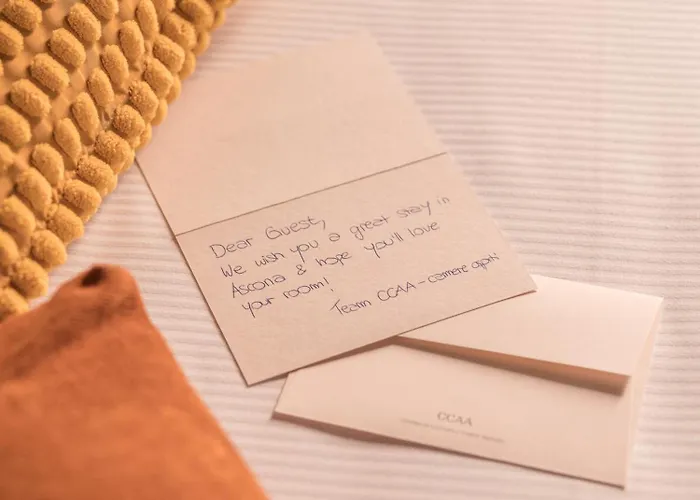 Dear Guest,
We wish you a great stay in
Ascona & hope you'll love
your room!
Team CCAA - camere aperte
CCAA